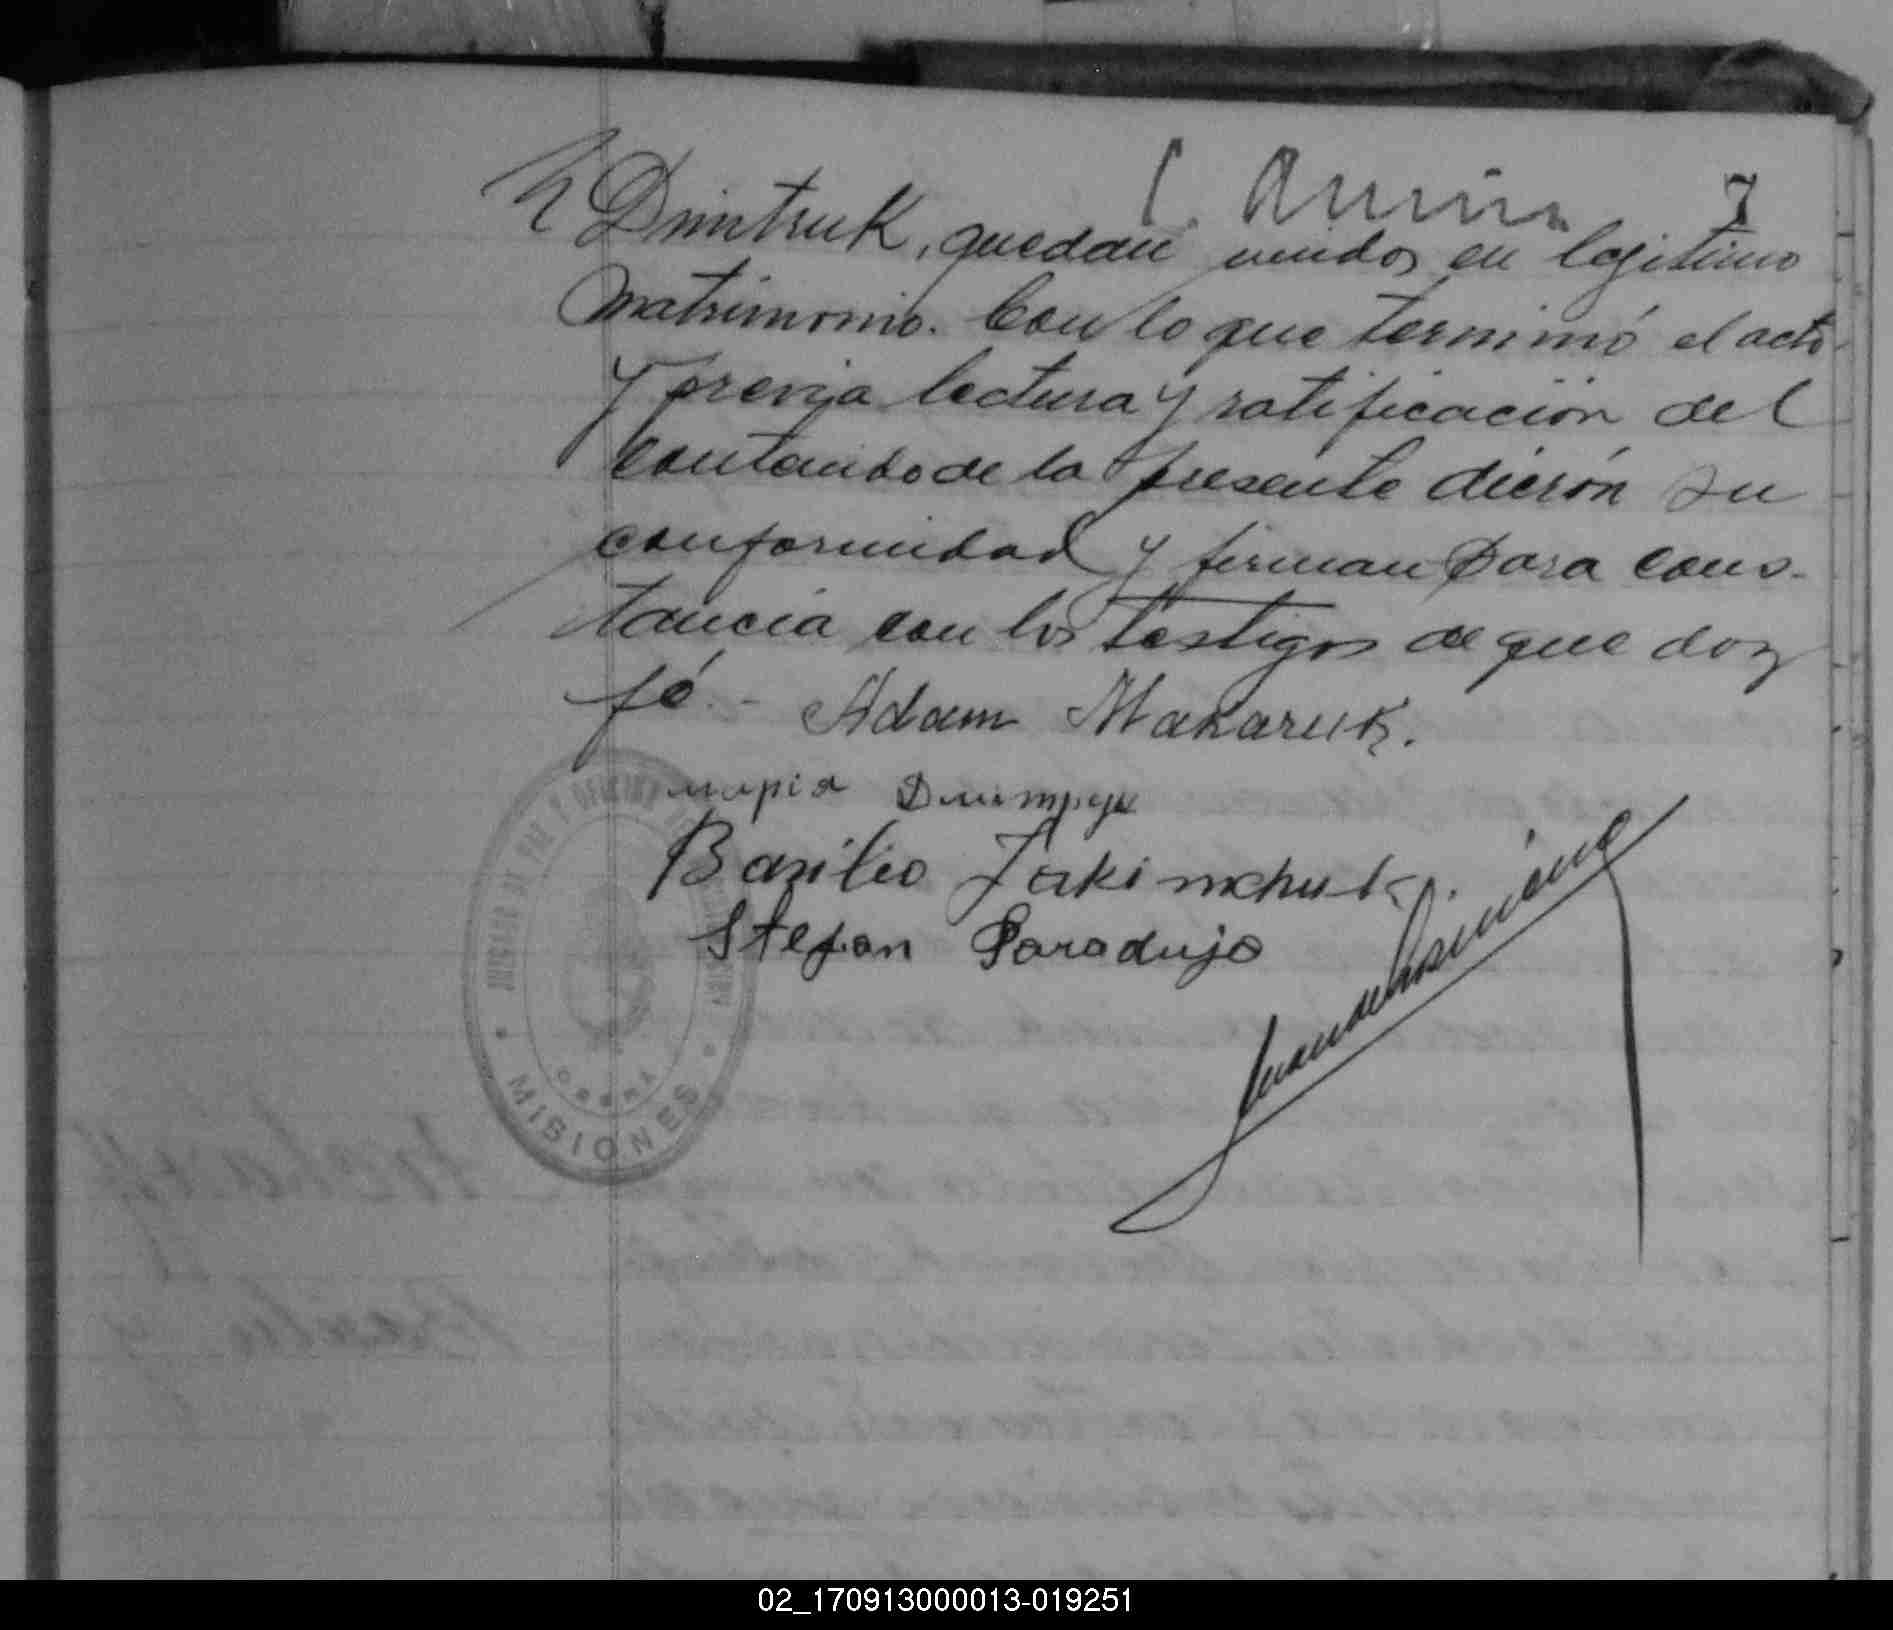 7
Dmitruk, quedan unidos en legitimo
matrimonio. Con lo que terminó el acto
y previa lectura y ratificación del
contenido de la presente dierón su
conformidad y firman para cons-
tancia con los testigos de que doy
fé.- Adam Makaruk.
марія Дмитрук
Basilio Jakimchuk.
Stefan Paradujo
JUZGADO DE PAZ Y
OBERÁ
MISIONES
02_170913000013-019251